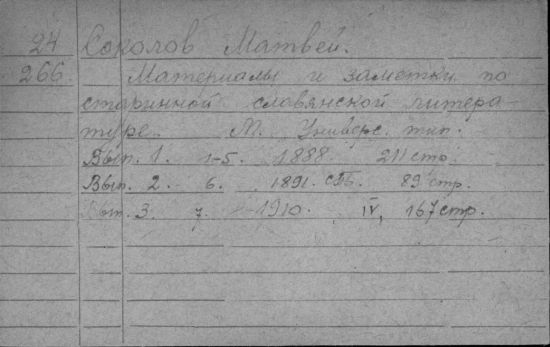 24 Соколов Матвей.
266 Материалы и заметки по
старинной славянской литера-
туре. М. Универс. тип.
Вып. 1. 1-5. 1888. 211 стр.
Вып. 2. 6. 1891. СПБ. 89 стр.
Вып. 3. 7. 1910. IV, 167 стр.